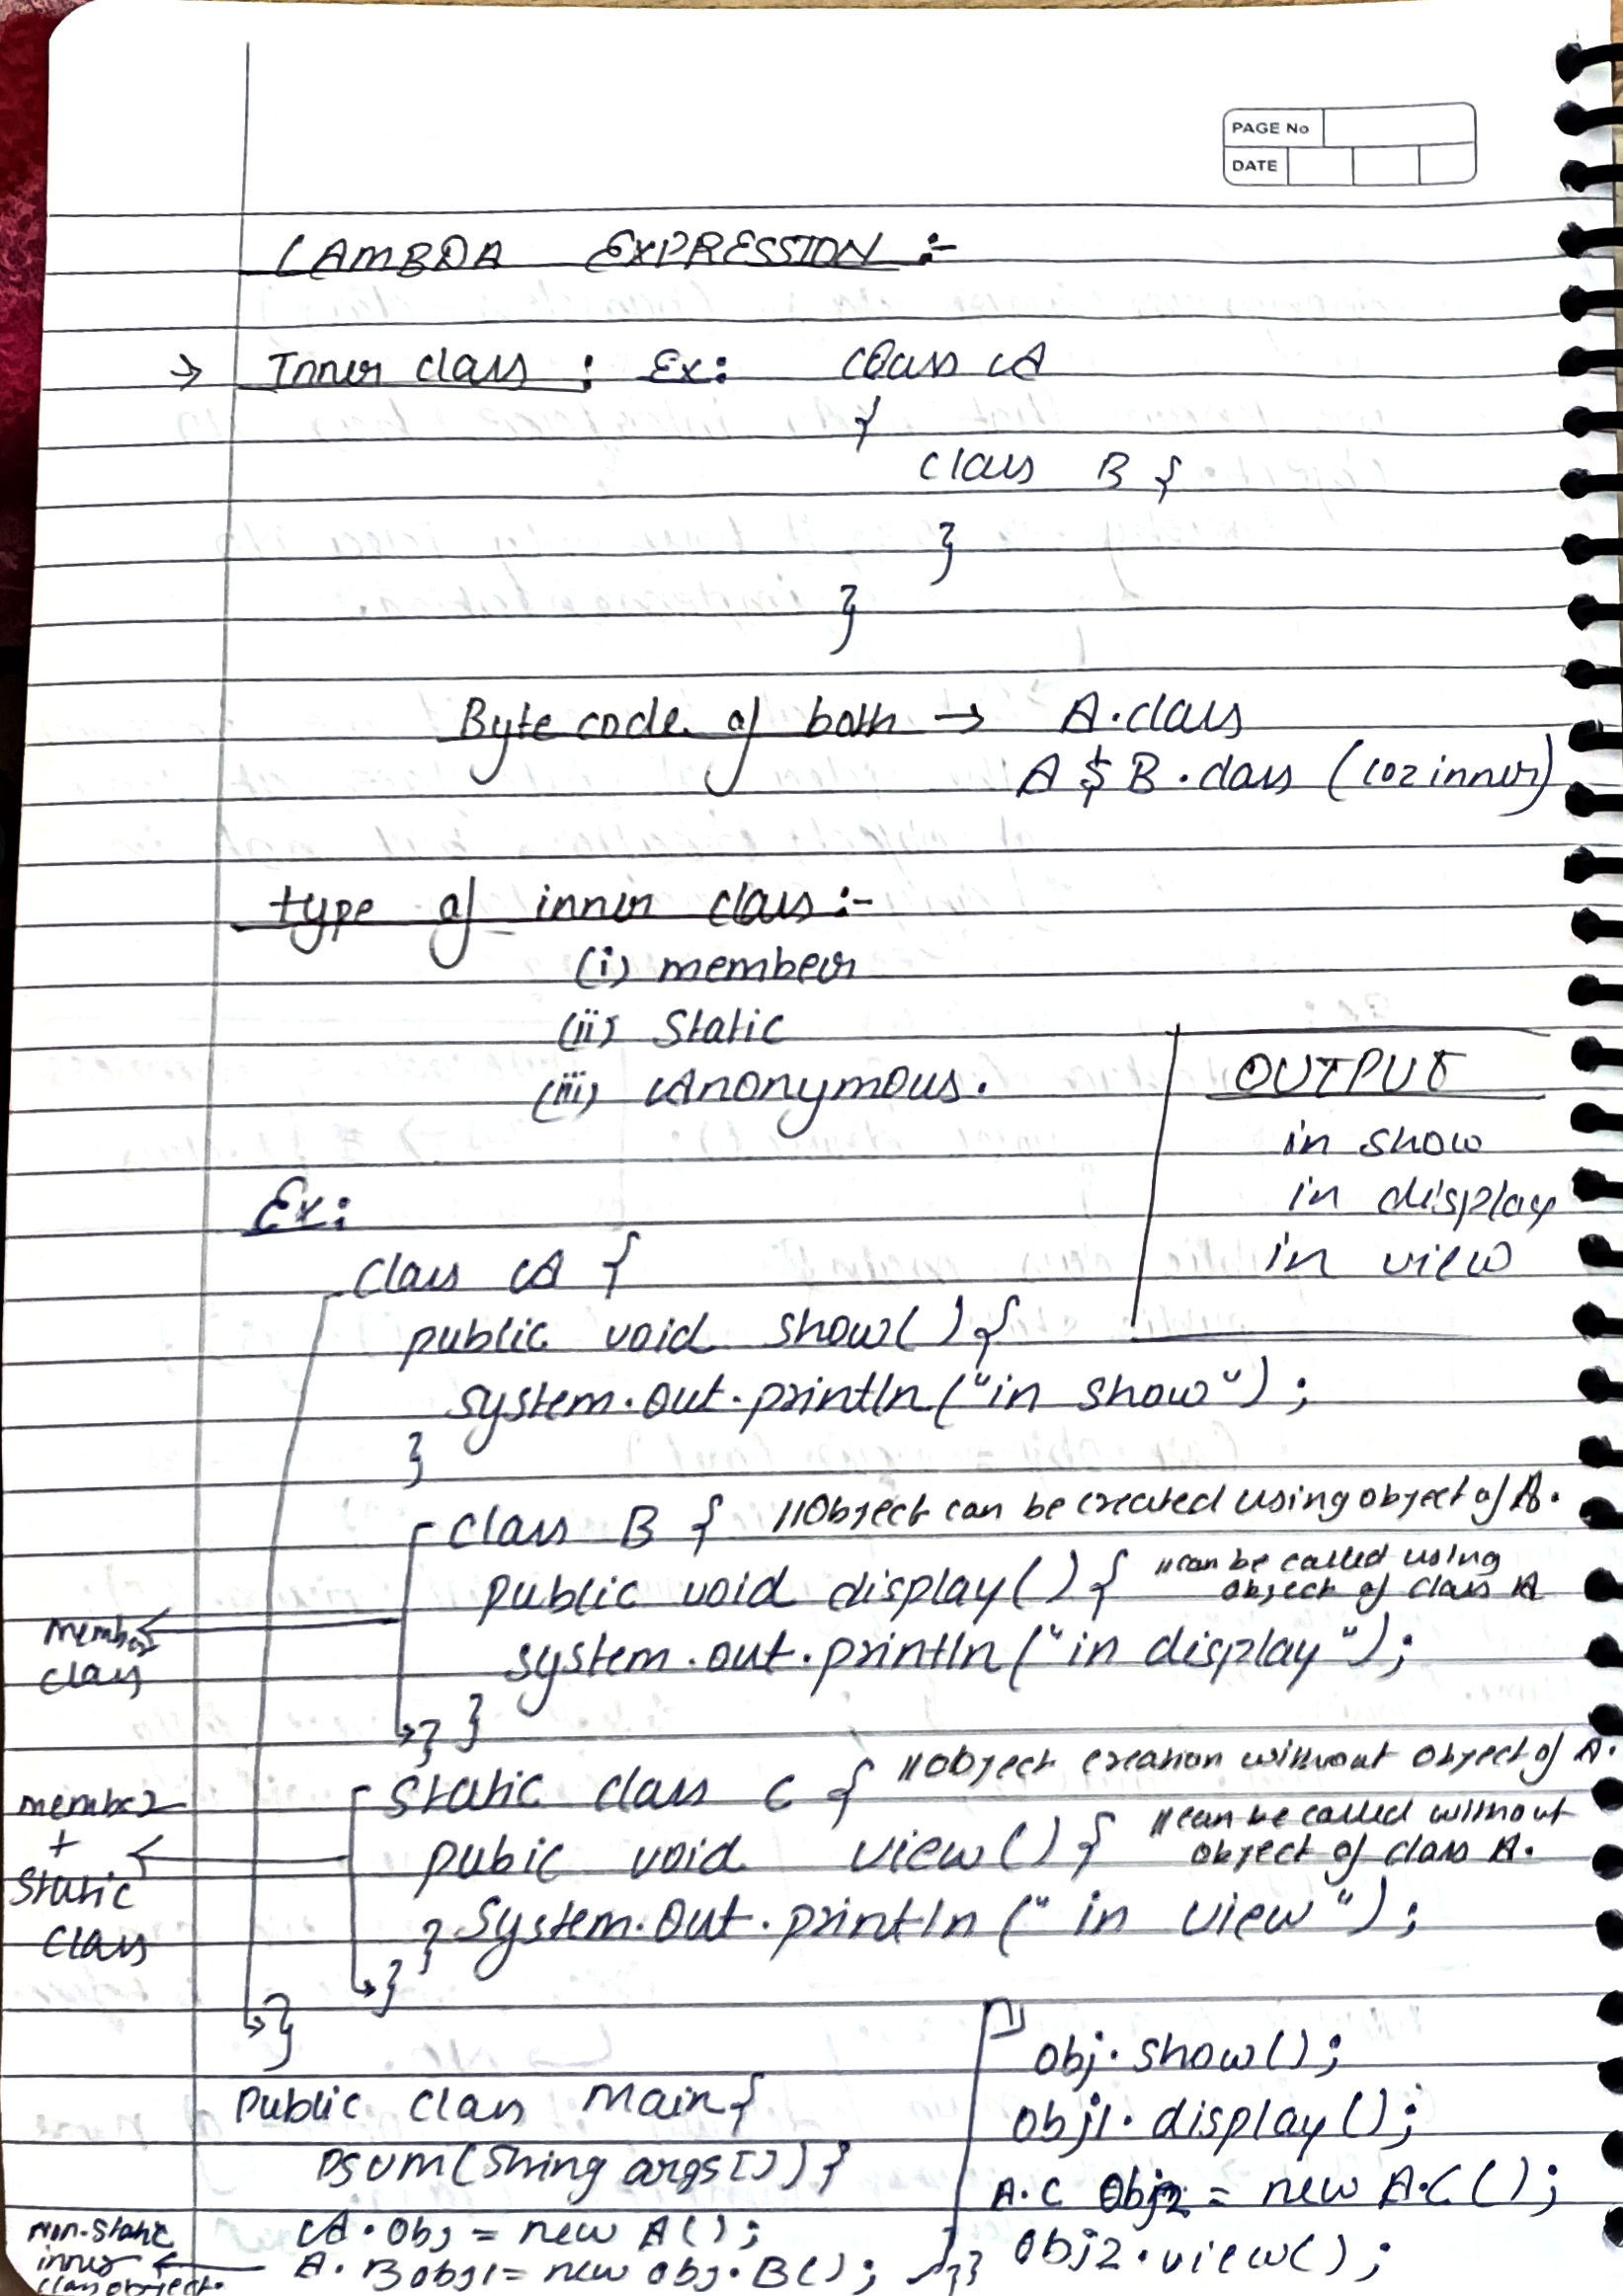 PAGE No
DATE
LAMBDA EXPRESSION :-
→ Inner class : Ex: class A
{
class B {
}
}
Byte code of both → A.class
A $ B.class (coz inner)
type of inner class :-
(i) member
(ii) Static
(iii) Anonymous.
OUTPUT
in show
in display
in view
Ex:
class A {
public void show() {
system.out.println("in show");
}
class B { //Object can be created using object of A.
public void display() { //can be called using
object of class A
system.out.println("in display");
} }
member
class
static class C { //object creation without object of A.
pubic void view() { //can be called without
object of class A.
} System.out.println(" in view");
}
member
+
static
class
}
public class Main {
psvm(String args[]) {
A. obj = new A();
A. B obj1 = new obj. B();
non-static
inner
class object.
obj.show();
obj1.display();
A.C obj2 = new A.C();
obj2.view();
}}